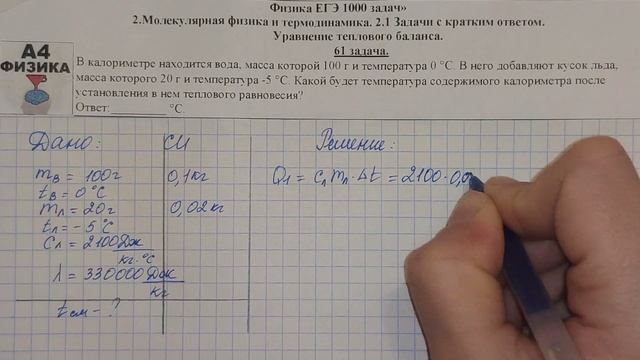 Физика ЕГЭ 1000 задач»
2.Молекулярная физика и термодинамика. 2.1 Задачи с кратким ответом.
Уравнение теплового баланса.
61 задача.
А4
ФИЗИКА
В калориметре находится вода, масса которой 100 г и температура 0 °С. В него добавляют кусок льда,
масса которого 20 г и температура -5 °С. Какой будет температура содержимого калориметра после
установления в нем теплового равновесия?
Ответ: __________ °С.
Дано: СИ Решение:
mв = 100г 0,1кг Qл = cл mл · Δt = 2100 · 0,0
tв = 0°С
mл = 20г 0,02кг
tл = - 5°С
Сл = 2100 Дж
кг·°С
λ = 330000 Дж
кг
tсм - ?